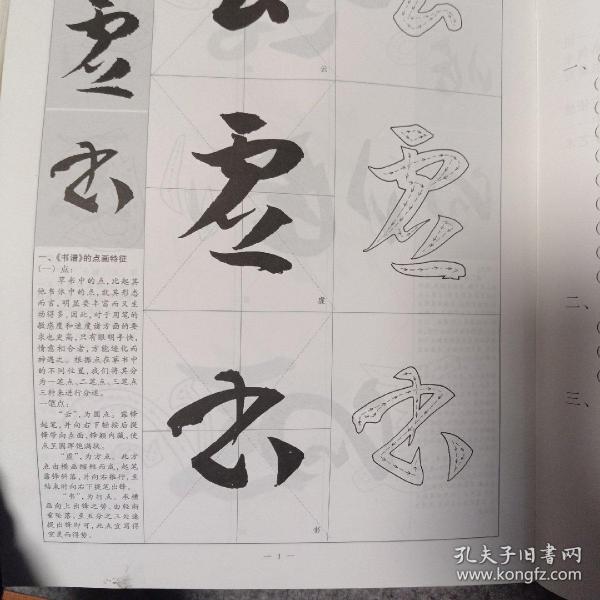 云
虚
书
一、《书谱》的点画特征
(一)点:
草书中的点,比起其
他书体中的点,就其形态
而言,明显要丰富而又生
动得多。因此,对于用笔的
敏感度和速度诸方面的要
求也更高,只有眼明手快,
情意和合者,方能达化而
神遇之。根据点在草书中
的不同位置,我们将其分
为一笔点、二笔点、三笔点
三种来进行分述。
一笔点:
“云”,为圆点。露锋
起笔,并向右下顿按后提
锋带向点画,锋颖内藏,使
点呈圆浑饱满状。
“虚”,为方点。此方
点由横画缩短而成,起笔
露锋斜落,并向右推行,至
结束时向右下提笔出锋。
“书”,为打点。承横
画向上出锋之势,由轻渐
重坠落,至五分之三处速
提出锋即可,此点宜写得
空灵而得势。
— 1 —
一、
二、
三、
孔夫子旧书网
www.kongfz.com